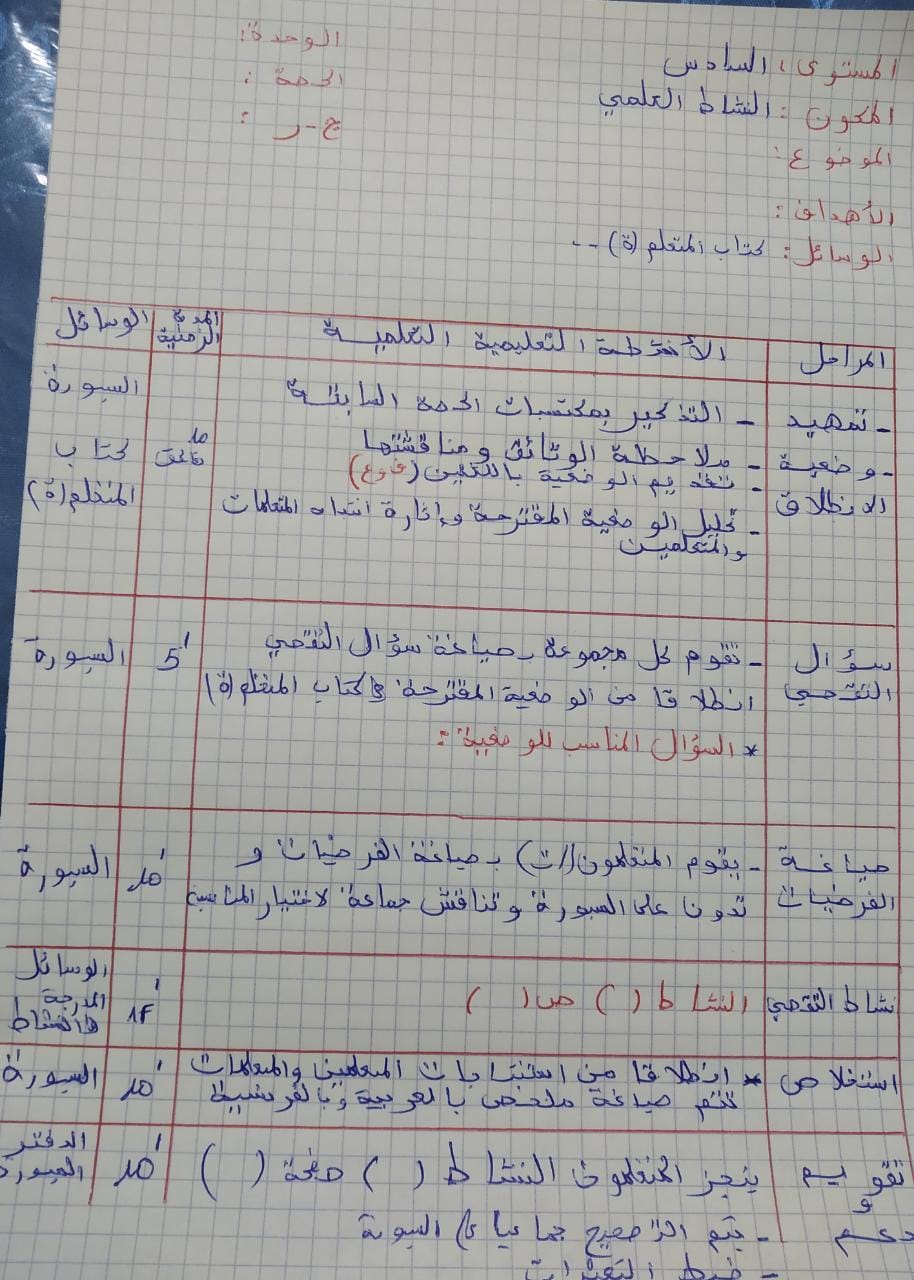 المستوى: السادس
الوحدة:
المكون: النشاط العلمي
الحصة:
الموضوع:
ج-ر:
الأهداف:
الوسائل: كتاب المتعلم (ة) --
المراحل
الأنشطة التعليمية التعلمية
المدة الزمنية
الوسائل
- تمهيد
- وضعية
الانطلاق
- التذكير بمكتسبات الحصة السابقة
- ملاحظة الوثائق ومناقشتها
- تقديم الوضعية باللغتين
- تحليل الوضعية المقترحة وإثارة انتباه المتعلمات
والمتعلمين
10
دقائق
السبورة
كتاب
المتعلم (ة)
سؤال
التقصي
- تقوم كل مجموعة بصياغة سؤال التقصي
انطلاقا من الوضعية المقترحة في كتاب المتعلم (ة)
* السؤال المناسب للوضعية:
5'
السبورة
صياغة
الفرضيات
- يقوم المتعلمون (ات) بصياغة الفرضيات و
تدون على السبورة وتناقش جماعة لاختيار المناسبة
10'
السبورة
نشاط التقصي
النشاط ( ) ص ( )
15'
الوسائل
المدرجة
في النشاط
استخلاص
* انطلاقا من استنتاجات المتعلمين والمتعلمات
تتم صياغة ملخص بالعربية وبالفرنسية
10'
السبورة
تقويم
و
دعم
ينجز المتعلمون النشاط ( ) صفحة ( )
- يتم التصحيح جماعيا السبورة
- ضبط التعثرات
10'
الدفتر
السبورة